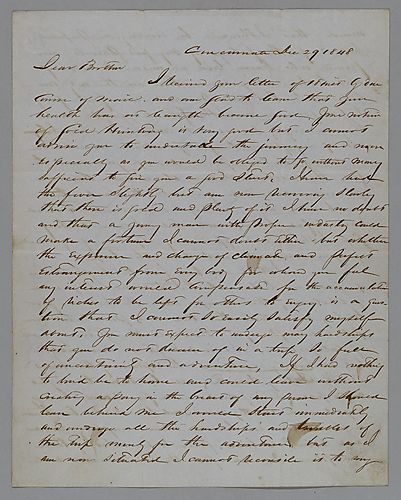 Cincinnati Dec 29 1848
Dear Brother
I received your letter of
and am glad to learn that your
health has at length become good. Your notion
of Gold Hunting is very good but I cannot
advise you to undertake the journey and more
especially as you would be obliged to go without many
to give you a good Stand. I have had
the fever slightly but am now recovering slowly
that there is gold and plenty of it I have no doubt
and that a young man with proper industry could
make a fortune I cannot doubt either but whether
the exposure and change of climate and perfect
Estrangement from every body for whom you feel
any interest would compensate for the accumulation
of riches to be left for others to enjoy is a ques
tion that I cannot so easily satisfy myself
about. You must expect to undergo many hardships
that you do not dream of in a trip so full
of uncertainty and adventure, If I had nothing
to bind me to home and could leave without
creating a pang in the breast of any person I should
leave behind me I would start immediately
and undergo all the hardships and troubles of
the trip merely for the adventure but as I
am now situated I cannot reconcile it to my